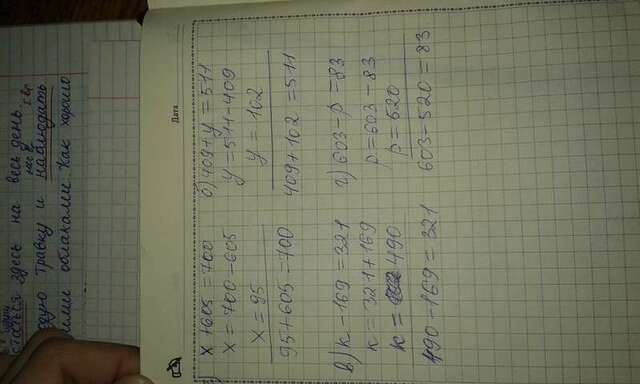 Дата
х+605=700
х=700-605
х=95
95+605=700
б) 409+у=511
у=511-409
у=102
409+102=511
в) к-169=321
к=321+169
к=490
490-169=321
г) 603-р=83
р=603-83
р=520
603-520=83
здесь на весь день
травку и наблюдать
облаками. Как хорошо